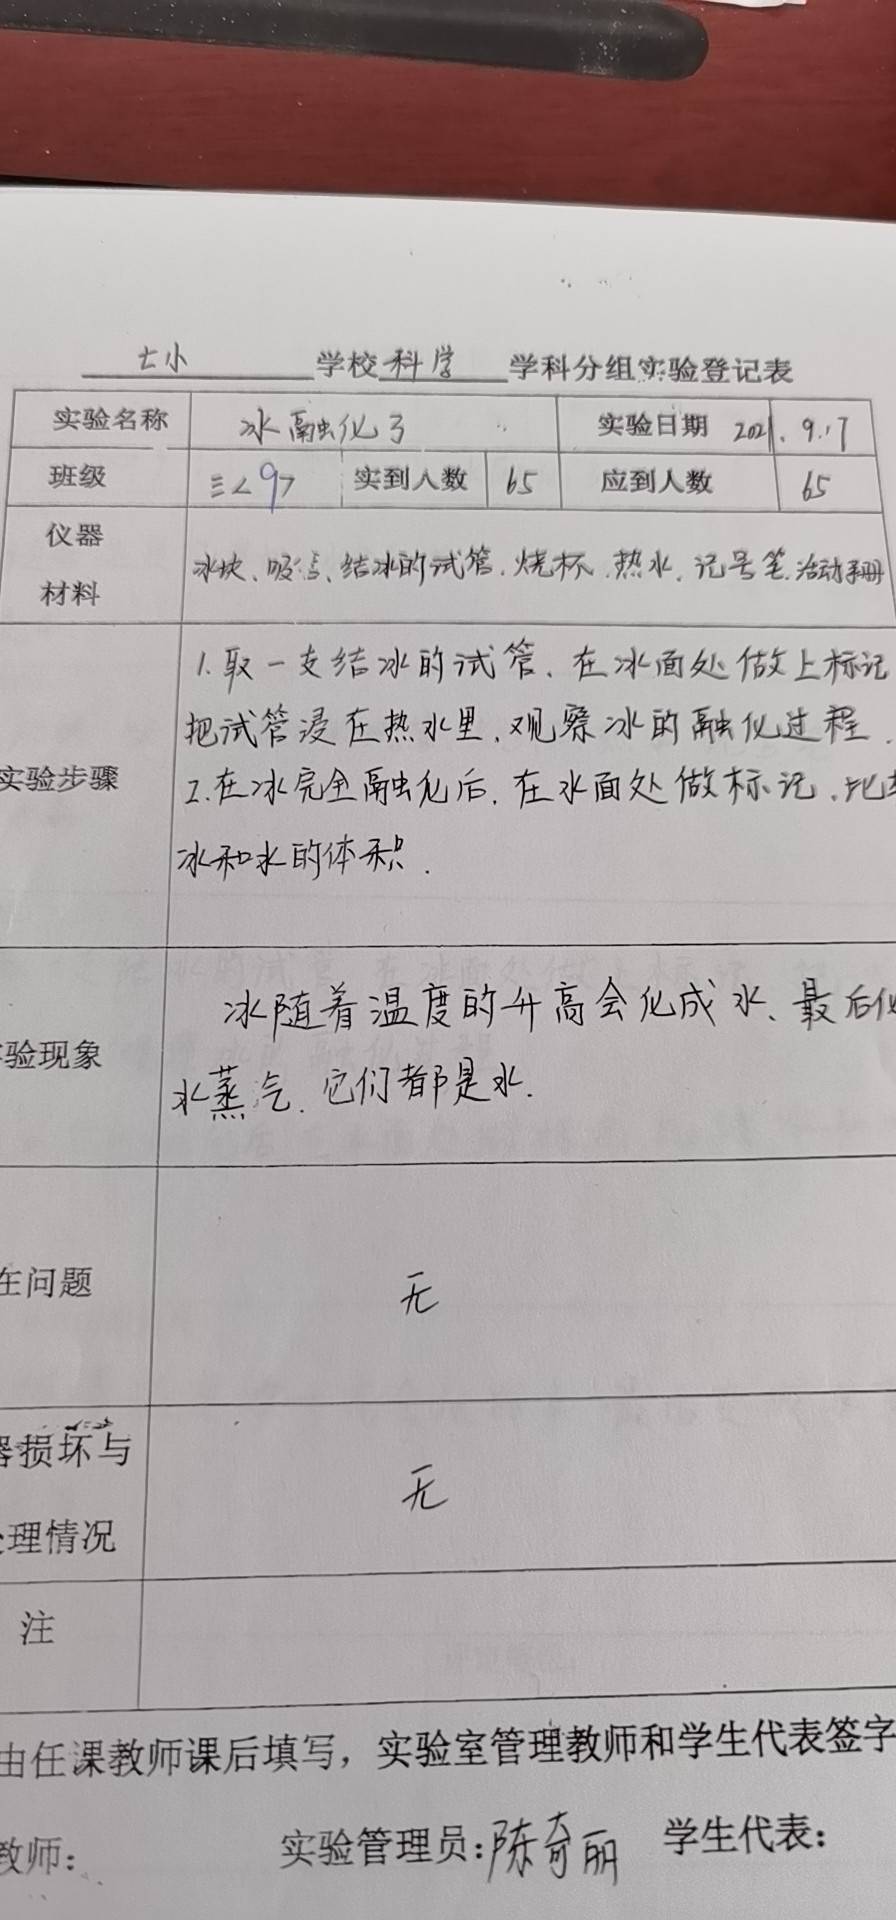 七小 学校 科学 学科分组实验登记表
实验名称 冰融化了 实验日期 2021.9.17
班级 三<9> 实到人数 65 应到人数 65
仪器
材料
冰块、吸管、结冰的试管、烧杯、热水、记号笔、活动手册
1.取一支结冰的试管、在冰面处做上标记
把试管浸在热水里,观察冰的融化过程.
实验步骤
2.在冰完全融化后,在水面处做标记,比
冰和水的体积.
冰随着温度的升高会化成水、最后化
验现象
水蒸气.它们都是水.
在问题 无
器损坏与
处理情况
无
注
由任课教师课后填写，实验室管理教师和学生代表签字
教师: 实验管理员:陈奇丽 学生代表: